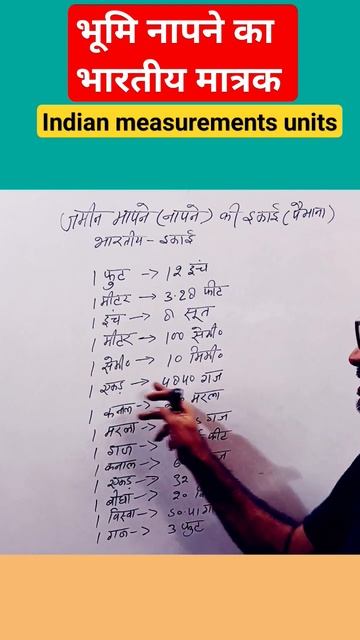 भूमि नापने का
भारतीय मात्रक
Indian measurements units
जमीन मापने (नापने) की इकाई (पैमाना)
भारतीय - इकाई
1 फुट -> 12 इंच
1 मीटर -> 3.28 फीट
1 इंच -> 8 सूत
1 मीटर -> 100 सेमी०
1 सेमी० -> 10 मिमी०
1 एकड़ -> 4840 गज
1 कनाल -> मरला
1 मरला -> गज
1 गज -> फीट
1 कनाल ->
1 एकड़ -> 32
1 बीघा -> 20
1 विस्वा -> 50.41
1 गज -> 3 फुट